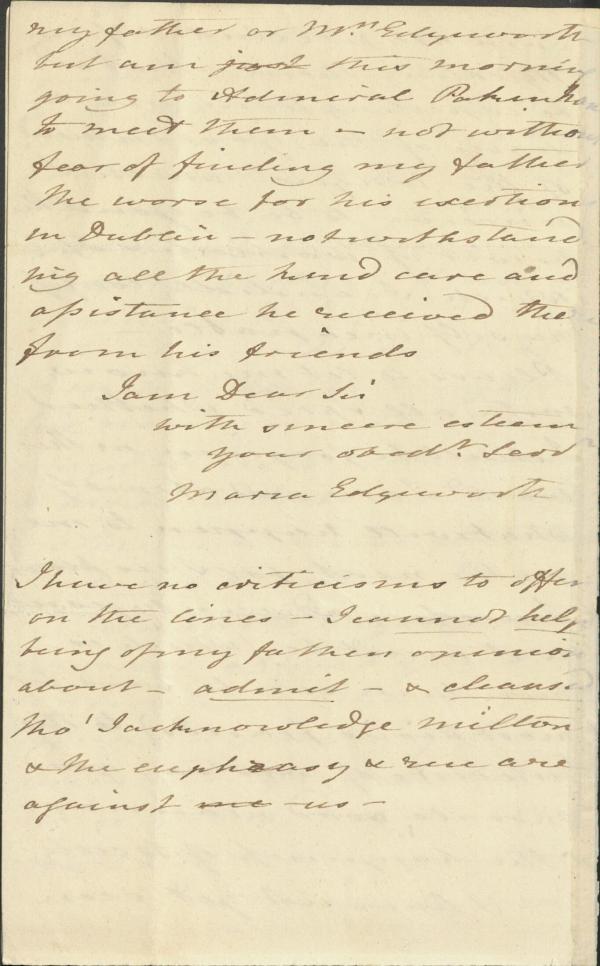 my father or Mrs Edgeworth
but am just this morning
going to Admiral Pakenham
to meet them – not without
fear of finding my father
the worse for his exertion
in Dublin – notwithstand
ing all the kind care and
assistance he received the
from his friends
I am Dear Sir
with sincere esteem
your obedt. Serv
Maria Edgeworth
I have no criticisms to offer
on the lines – I cannot help
being of my fathers opinion
about – admit – & cleanse
tho' I acknowledge Milton
& the euphrasy & rue are
against me us –